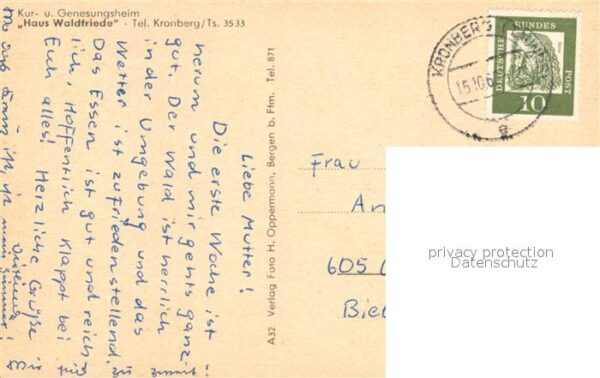 Kur- u. Genesungsheim
„Haus Waldfriede" · Tel. Kronberg/Ts. 3533
Liebe Mutter!
Die erste Woche ist
herum und mir gehts ganz
gut. Der Wald ist herrlich
in der Umgebung und das
Wetter ist zufriedenstellend.
Das Essen ist gut und reich-
lich, Hoffentlich klappt bei
Euch alles! Herzliche Grüße
A32 Verlag Foto H. Oppermann, Bergen b. Ffm. Tel. 871
KRONBERG
15.10.6
a
DEUTSCHE BUNDESPOST
10
Frau
An
605
Bie
privacy protection
Datenschutz